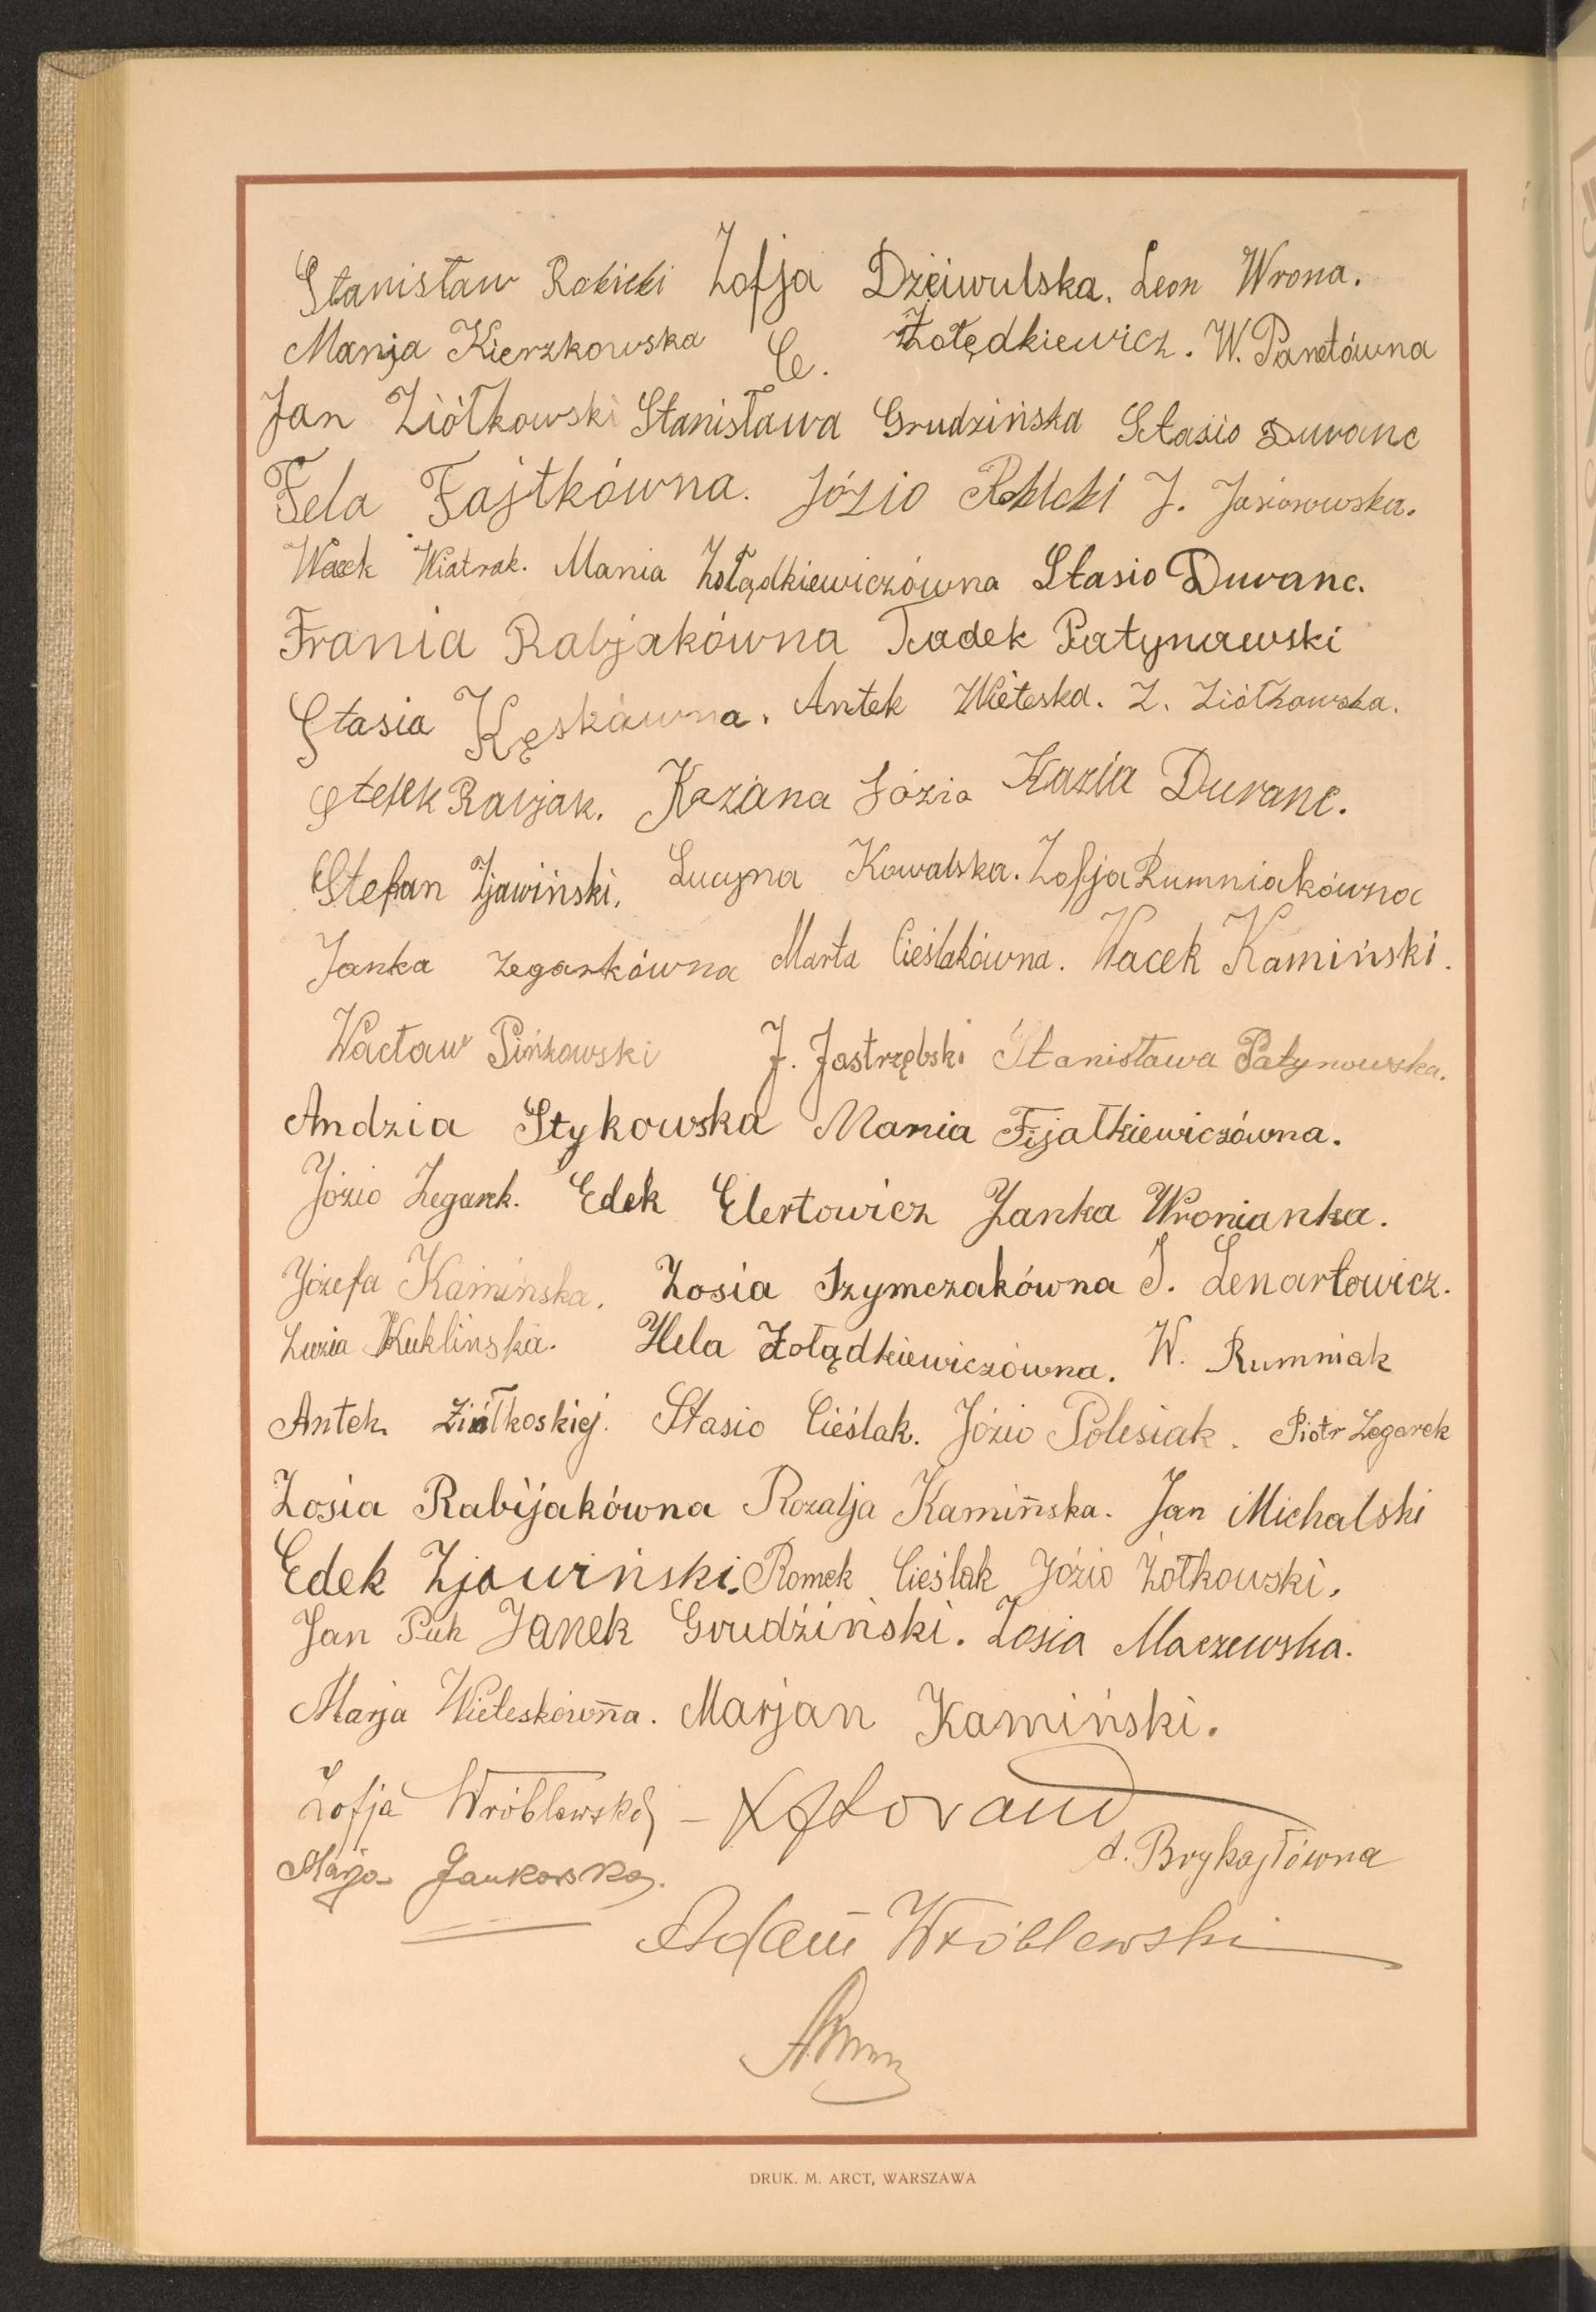 Stanisław Rokicki Zofja Dziewulska. Leon Wrona.
Marija Kierzkowska C. Żołędkiewicz. W. Panetówna
Jan Ziółkowski Stanisława Grudzińska Stasio Duranc
Fela Fajtkówna. Józio Rokicki J. Jasionowska.
Wacek Wiatrak. Mania Żołądkiewiczówna Stasio Duranc.
Frania Rabjakówna Tadek Patynowski
Stasia Kęskówna. Antek Wieteska. Z. Ziółkowska.
Stefek Rabjak. Kazana Józia Kazia Duranc.
Stefan Zjawiński. Lucyna Kowalska. Zofja Rumniakówna
Janka Zegarkówna Marta Cieślakówna. Wacek Kamiński.
Wacław Pińkowski J. Jastrzębski Stanisława Patynowska.
Andzia Stykowska Mania Fijałkiewiczówna.
Józio Zegarek. Edek Elertowicz Janka Wronianka.
Józefa Kamińska. Zosia Szymczakówna J. Lenartowicz.
Luzia Kuklinska. Hela Żołądkiewiczówna. W. Rumniak
Antek Ziółkoskiej. Stasio Cieślak. Józio Polesiak. Piotr Zegarek
Zosia Rabijakówna Rozalja Kamińska. Jan Michalski
Edek Zjawiński. Romek Cieślak Józio Żółkowski.
Jan Puk Janek Grudźiński. Zosia Maczewska.
Marja Wieteskówna. Marjan Kamiński.
Zofja Wróblewska –
A. Brykajłówna
Marja Jankowska.
Adam Wróblewski
DRUK. M. ARCT, WARSZAWA